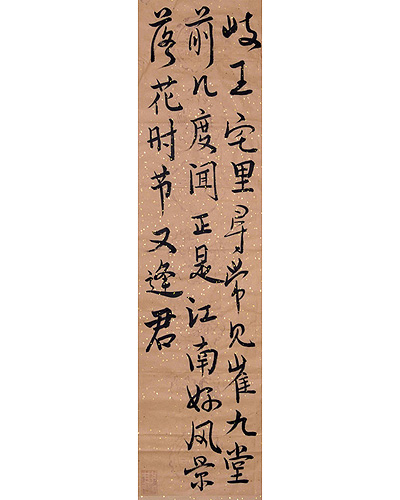 岐王宅里寻常见崔九堂
前几度闻正是江南好风景
落花时节又逢君